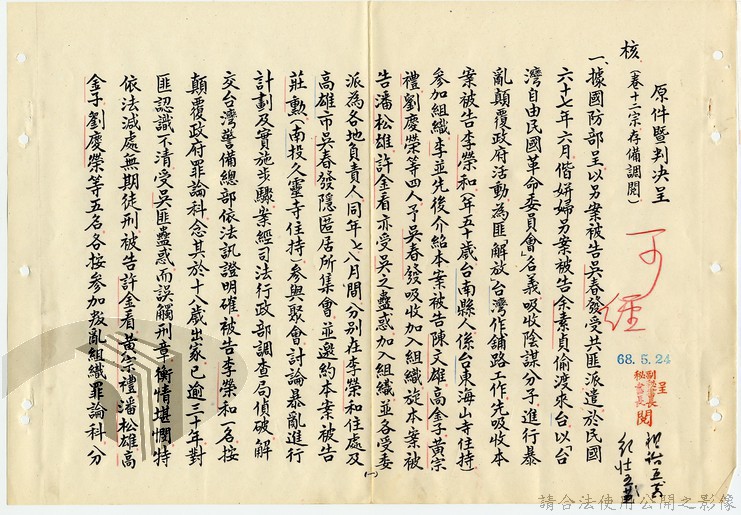 原件暨判决呈
核（卷十二宗存備調閱）
一、據國防部呈以另案被告吳春發受共匪派遣於民國
六十七年六月偕姘婦另案被告余素貞偷渡來台以「台
灣自由民國革命委員會」名義吸收陰謀分子進行暴
亂顛覆政府活動為匪「解放台灣」作舖路工作先吸收本
案被告李榮和（年五十歲台南縣人係台東海山寺住持）
參加組織李並先後介紹本案被告陳文雄高金子黃宗
禮劉慶榮等四人予吳春發吸收加入組織旋本案被
告潘松雄許金看亦受吳之蠱惑加入組織並各受委
派為各地負責人同年七八月間分別在李榮和住處及
高雄市吳春發隱匿居所集會並邀約本案被告
莊勲（南投久靈寺住持）參與聚會討論暴亂進行
計劃及實施步驟案經司法行政部調查局偵破解
交台灣警備總部依法訊證明確被告李榮和一名按
顛覆政府罪論科念其於十八歲出家已逾三十年對
匪認識不清受吳匪蠱惑而誤觸刑章衡情堪憫特
依法減處無期徒刑被告許金看黃宗禮潘松雄高
金子劉慶榮等五名各按參加叛亂組織罪論科（分
(一)
可
經
68.5.24
呈
副秘書長
秘書長
閱
請合法使用公開之影像